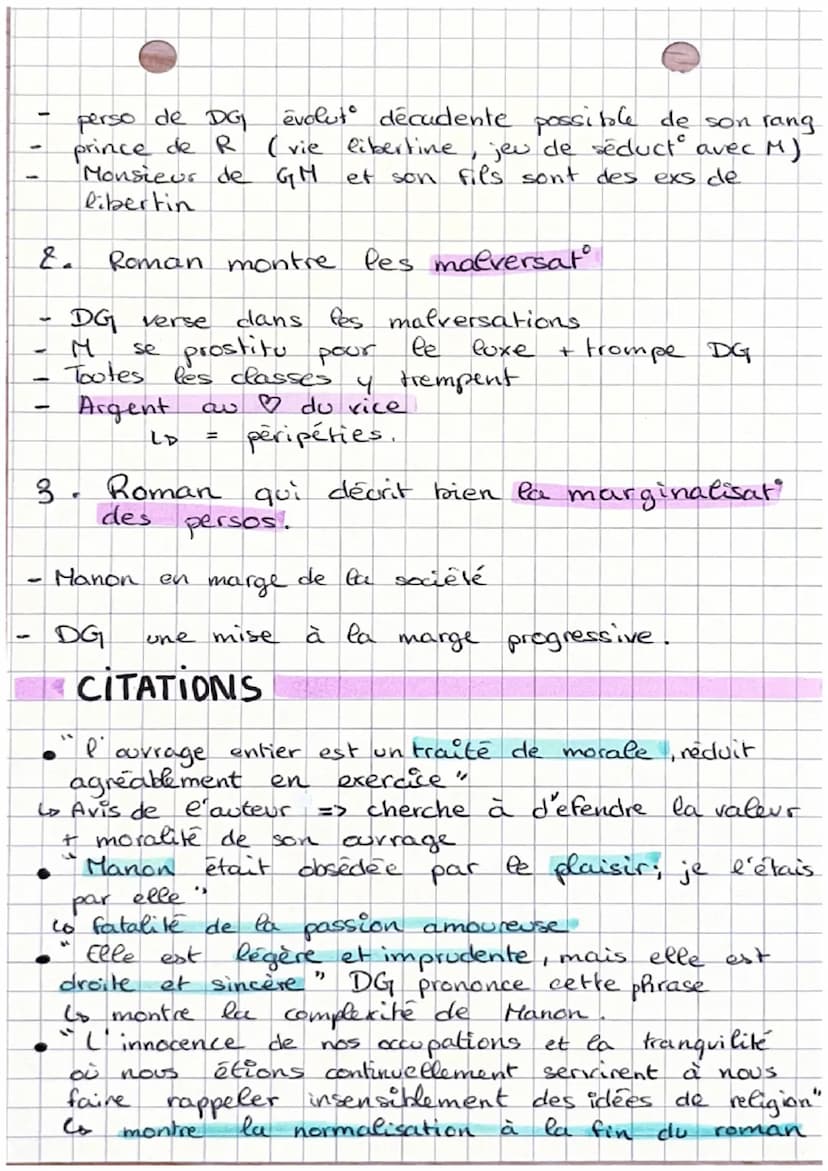 - perso de DG évolut° décadente possible de son rang
- prince de R (vie libertine, jeu de séduct° avec M)
- Monsieur de GM et son fils sont des exs de
libertin
2. Roman montre les malversat°
- DG verse dans les malversations
- M se prostitu pour le luxe + trompe DG
- Toutes les classes y trempent
- Argent au ♡ du vice
↳ = péripéties.
3. Roman qui décrit bien la marginalisat°
des persos.
- Manon en marge de la société
- DG une mise à la marge progressive.
CITATIONS
• "l'ouvrage entier est un traité de morale, réduit
agréablement en exercice"
↳ Avis de l'auteur => cherche à d'éfendre la valeur
+ moralité de son ouvrage
• "Manon était obsédée par le plaisir; je l'étais
par elle"
↳ fatalité de la passion amoureuse
• "Elle est légère et imprudente, mais elle est
droite et sincère" DG prononce cette phrase
↳ montre la complexité de Manon.
• "L'innocence de nos occupations et la tranquilité
où nous étions continuellement servirent à nous
faire rappeler insensiblement des idées de religion"
↳ montre la normalisation à la fin du roman